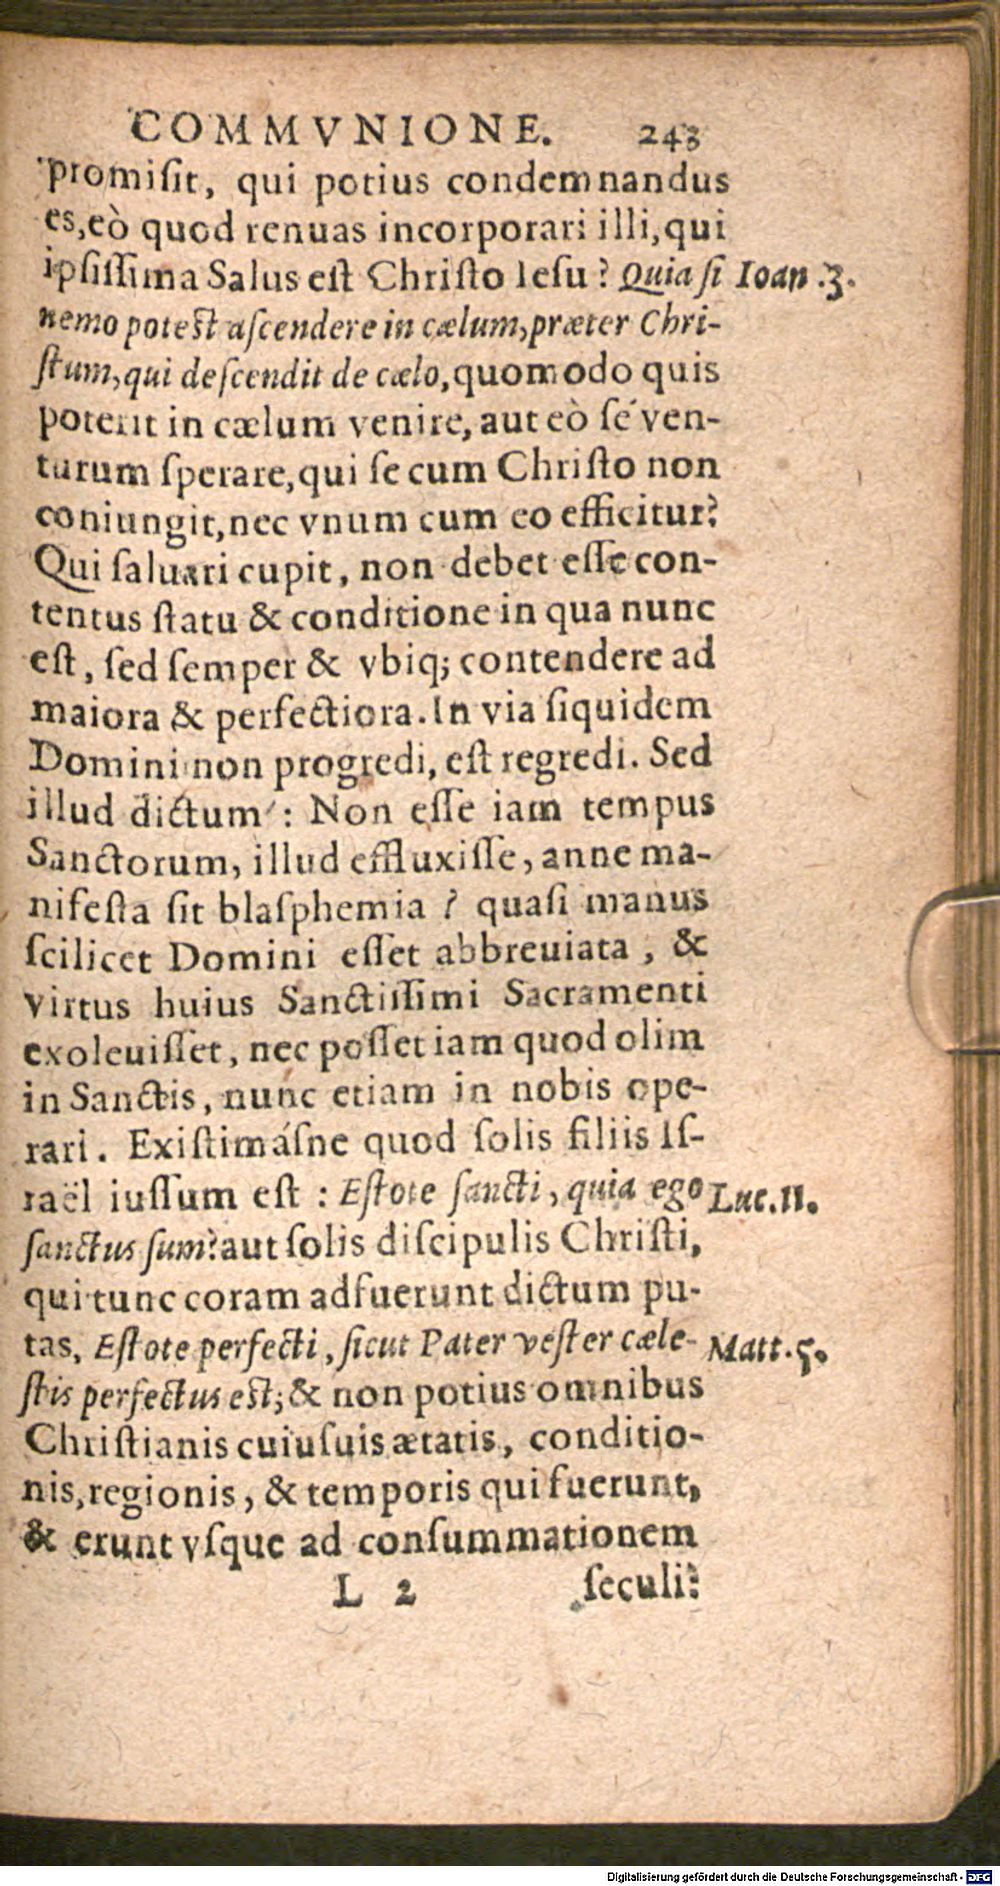 COMMVNIONE. 243
promiſit, qui potius condemnandus
es, eò quod renuas incorporari illi, qui
ipſiſſima Salus eſt Chriſto Ieſu? Quia ſi Ioan. 3.
nemo poteſt aſcendere in cælum, præter Chri-
ſtum, qui deſcendit de cælo, quomodo quis
poterit in cælum venire, aut eò ſe ven-
turum ſperare, qui ſe cum Chriſto non
coniungit, nec vnum cum eo efficitur?
Qui ſaluari cupit, non debet eſſe con-
tentus ſtatu & conditione in qua nunc
eſt, ſed ſemper & vbiq; contendere ad
maiora & perfectiora. In via ſiquidem
Domini non progredi, eſt regredi. Sed
illud dictum: Non eſſe iam tempus
Sanctorum, illud effluxiſſe, anne ma-
nifeſta ſit blaſphemia? quaſi manus
ſcilicet Domini eſſet abbreuiata, &
virtus huius Sanctiſſimi Sacramenti
exoleuiſſet, nec poſſet iam quod olim
in Sanctis, nunc etiam in nobis ope-
rari. Exiſtimáſne quod ſolis filiis Iſ-
raël iuſſum eſt: Eſtote ſancti, quia ego Luc. 11.
ſanctus ſum? aut ſolis diſcipulis Chriſti,
qui tunc coram adfuerunt dictum pu-
tas, Eſtote perfecti, ſicut Pater veſter cæle- Matt. 5.
ſtis perfectus eſt; & non potius omnibus
Chriſtianis cuiuſuis ætatis, conditio-
nis, regionis, & temporis qui fuerunt,
& erunt vſque ad conſummationem
L 2 ſeculi?
Digitalisierung gefördert durch die Deutsche Forschungsgemeinschaft - DFG